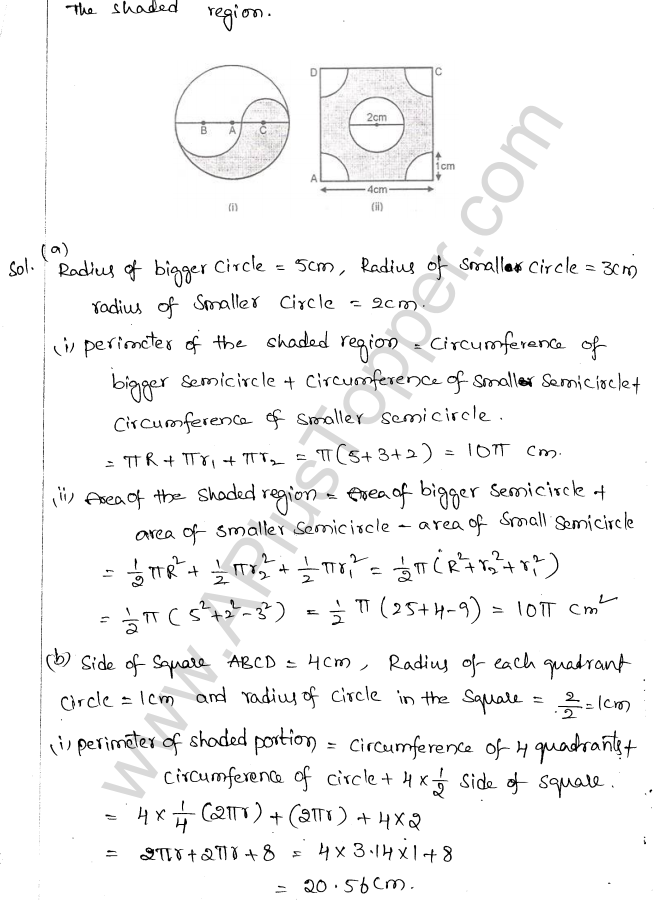 The shaded region.
D C
B A C 2cm
A 1cm
4cm
(i) (ii)
Sol. (a) Radius of bigger circle = 5cm, Radius of small circle = 3cm
radius of smaller circle = 2cm.
(i) perimeter of the shaded region = circumference of
bigger semicircle + circumference of small semicircle +
circumference of smaller semicircle.
= πR + πr₁ + πr₂ = π(5+3+2) = 10π cm.
(ii) Area of the shaded region = area of bigger semicircle +
area of smaller semicircle - area of small semicircle
= 1/2 πR² + 1/2 πr₂² + 1/2 πr₁² = 1/2 π(R²+r₂²+r₁²)
= 1/2 π(5²+2²-3²) = 1/2 π(25+4-9) = 10π cm²
(b) Side of square ABCD = 4cm, Radius of each quadrant
circle = 1cm and radius of circle in the square = 2/2 = 1cm
(i) perimeter of shaded portion = circumference of 4 quadrants +
circumference of circle + 4 × 1/2 side of square.
= 4 × 1/4 (2πr) + (2πr) + 4×2
= 2πr+2πr+8 = 4×3.14×1+8
= 20.56cm.
www.APlusTopper.com